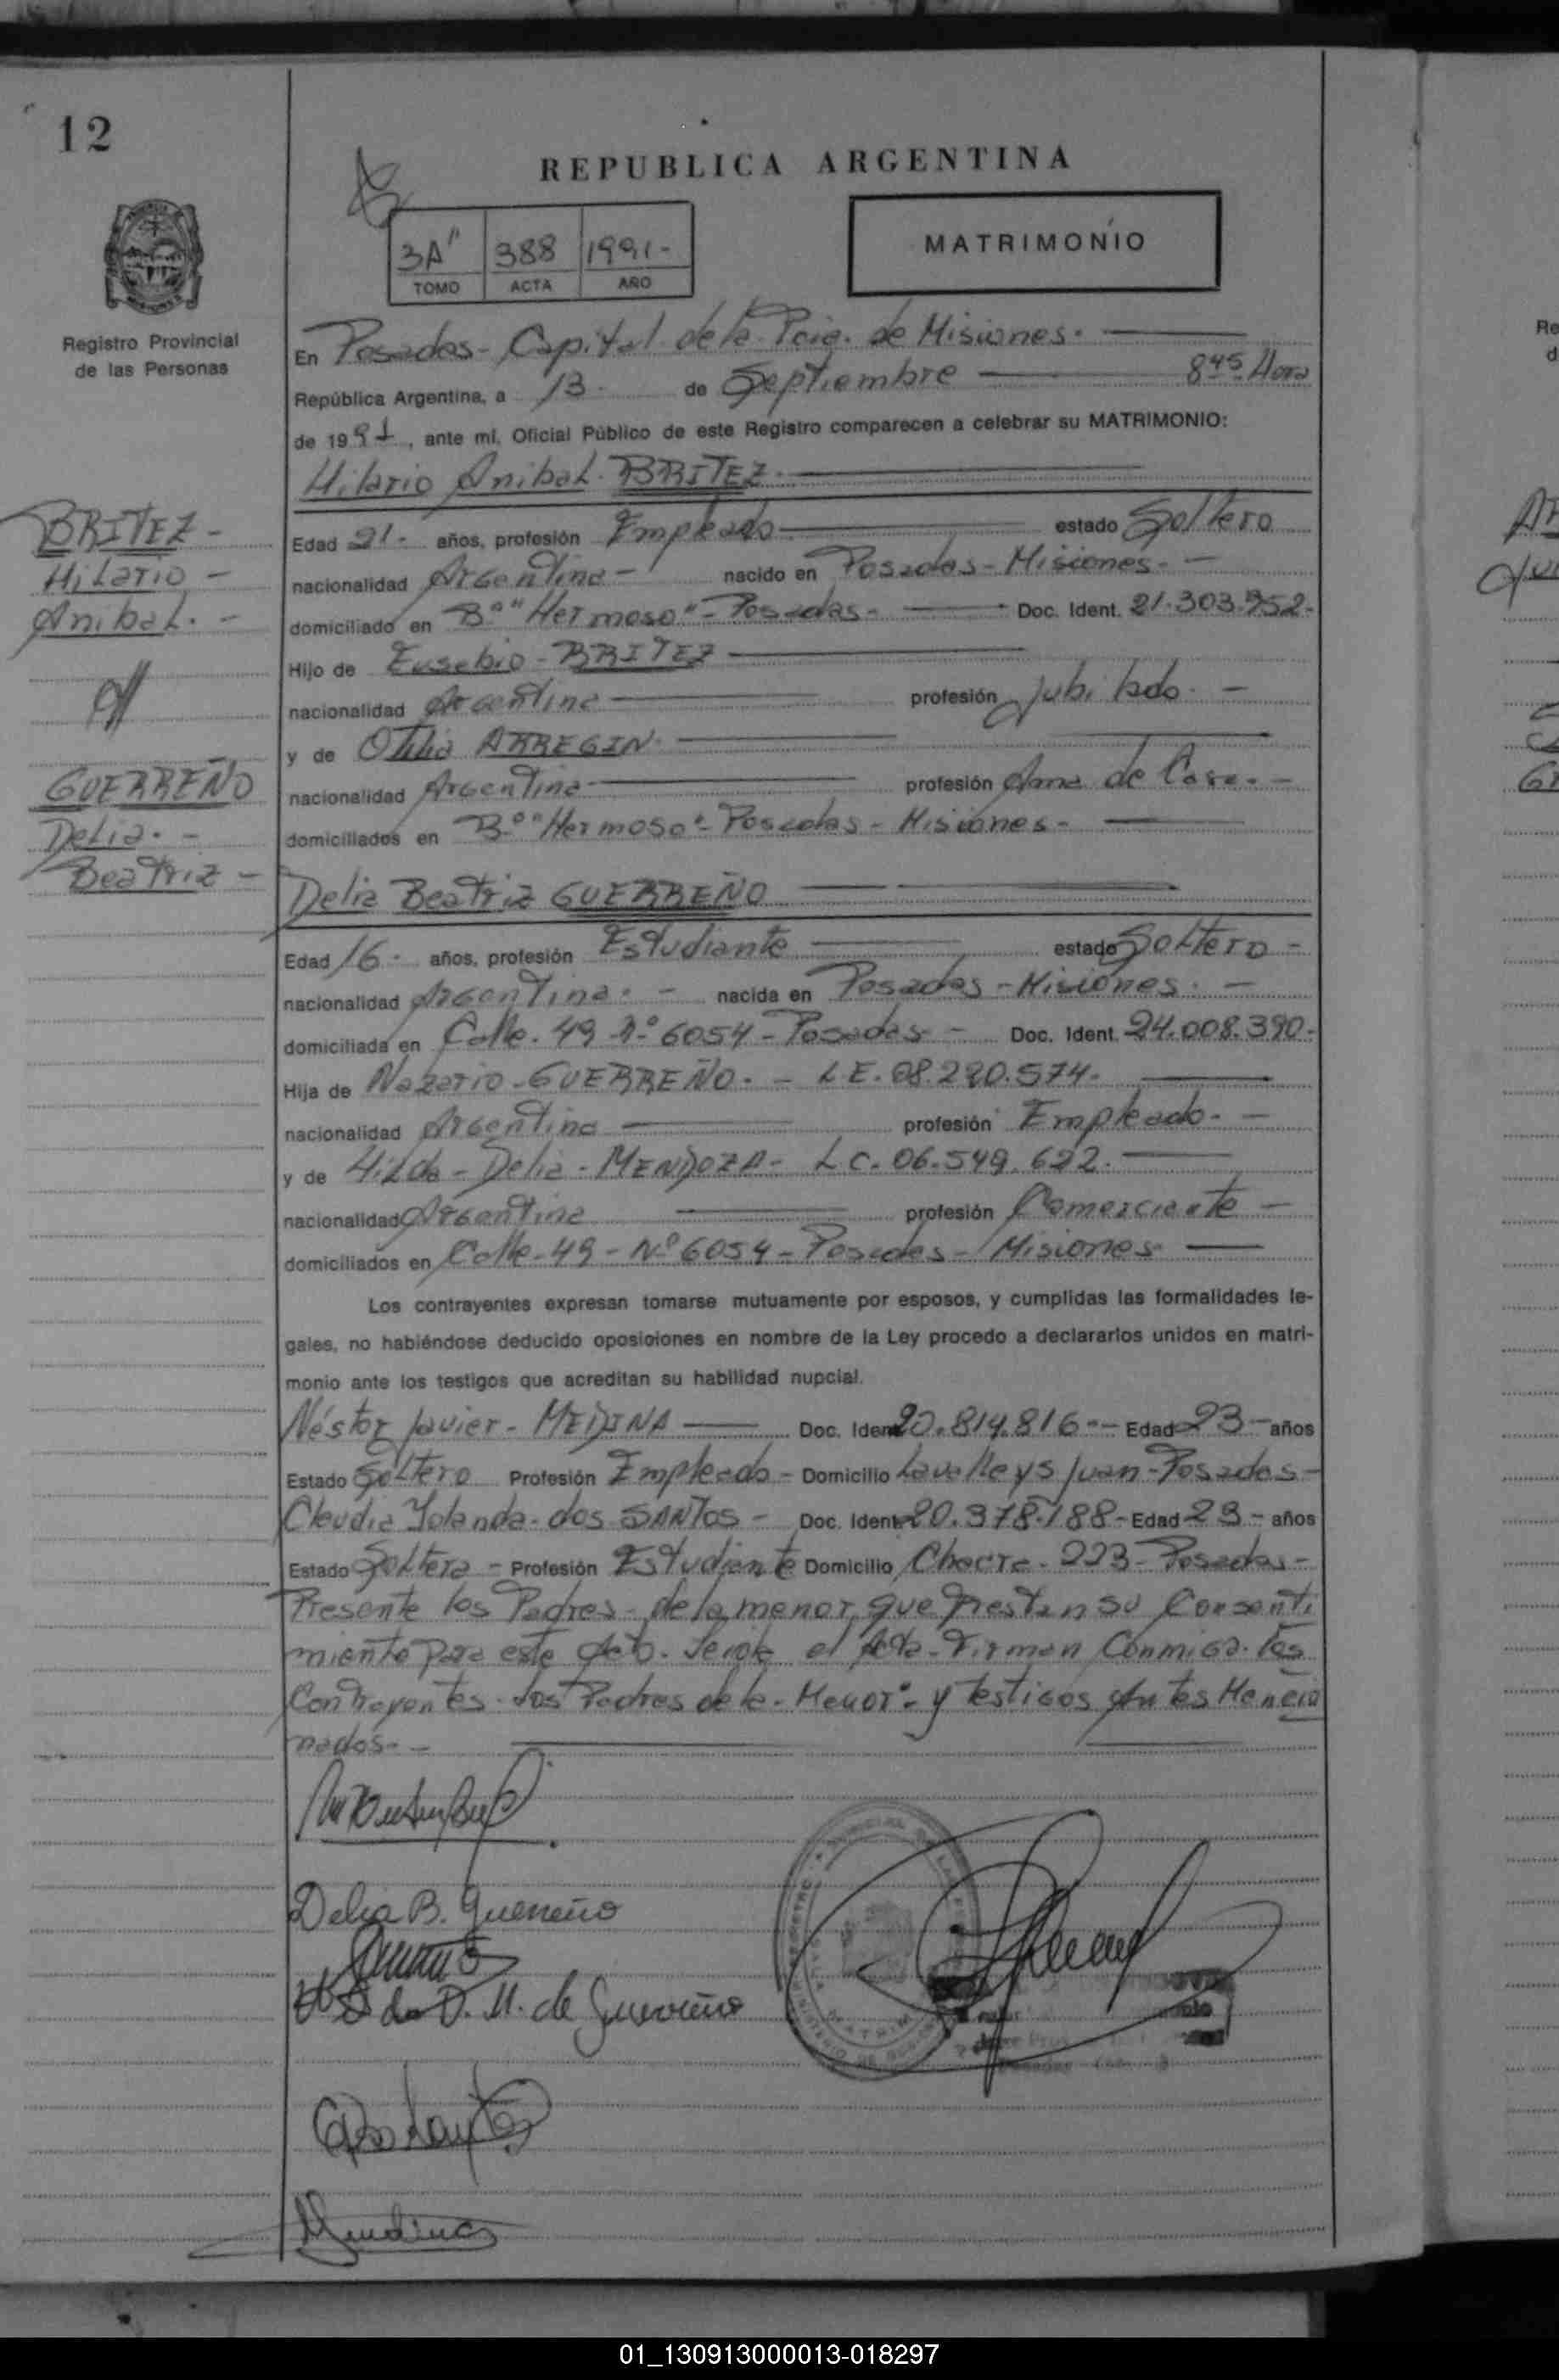 12
REPUBLICA ARGENTINA
3A" 388 1991-
TOMO ACTA AÑO
MATRIMONIO
Registro Provincial
de las Personas
En Posadas - Capital de la Pcia. de Misiones.
República Argentina, a 13 de Septiembre 8 45 Hora
de 1991, ante mi, Oficial Público de este Registro comparecen a celebrar su MATRIMONIO:
Hilario Anibal BRITEZ
BRITEZ -
Hilario -
Anibal. -
Edad 21- años, profesión Empleado estado Soltero
nacionalidad Argentina - nacido en Posadas - Misiones. -
domiciliado en B.º "Hermoso" - Posadas - Doc. Ident. 21.303.952-
Hijo de Eusebio - BRITEZ
nacionalidad Argentina profesión Jubilado. -
y de Otilia ARREGIN
nacionalidad Argentina profesión Ama de Casa. -
domiciliados en B.º "Hermoso" - Posadas - Misiones -
GUERREÑO
Delia. -
Beatriz -
Delia Beatriz GUERREÑO
Edad 16- años, profesión Estudiante estado Soltero -
nacionalidad Argentina. - nacida en Posadas - Misiones. -
domiciliada en Calle. 49 Nº 6054 - Posadas - Doc. Ident. 24.008.390-
Hija de Nazario - GUERREÑO. - L.E. 08.290.574-
nacionalidad Argentina profesión Empleado. -
y de Hilda - Delia - MENDOZA - L.C. 06.549.622.
nacionalidad Argentina profesión Comerciante -
domiciliados en Calle - 49 - Nº 6054 - Posadas - Misiones
Los contrayentes expresan tomarse mutuamente por esposos, y cumplidas las formalidades le-
gales, no habiéndose deducido oposiciones en nombre de la Ley procedo a declararlos unidos en matri-
monio ante los testigos que acreditan su habilidad nupcial.
Néstor Javier - MEDINA Doc. Ident. 20.814.816 - Edad 23 - años
Estado Soltero Profesión Empleado - Domicilio Lavalle y S/ Juan - Posadas -
Claudia Yolanda - dos SANTOS - Doc. Ident. 20.378.188 - Edad 23 - años
Estado Soltera - Profesión Estudiante Domicilio Chacra - 223 - Posadas -
Presente los Padres - de la menor, que prestan su Consenti
miento para este Acto. Leida el Acta - Firman Conmigo. los
Contrayentes. Los Padres de la - Menor - y testigos Antes Mencio
nados. -
Delia B. Guerreño
D. M. de Guerreño
01_130913000013-018297